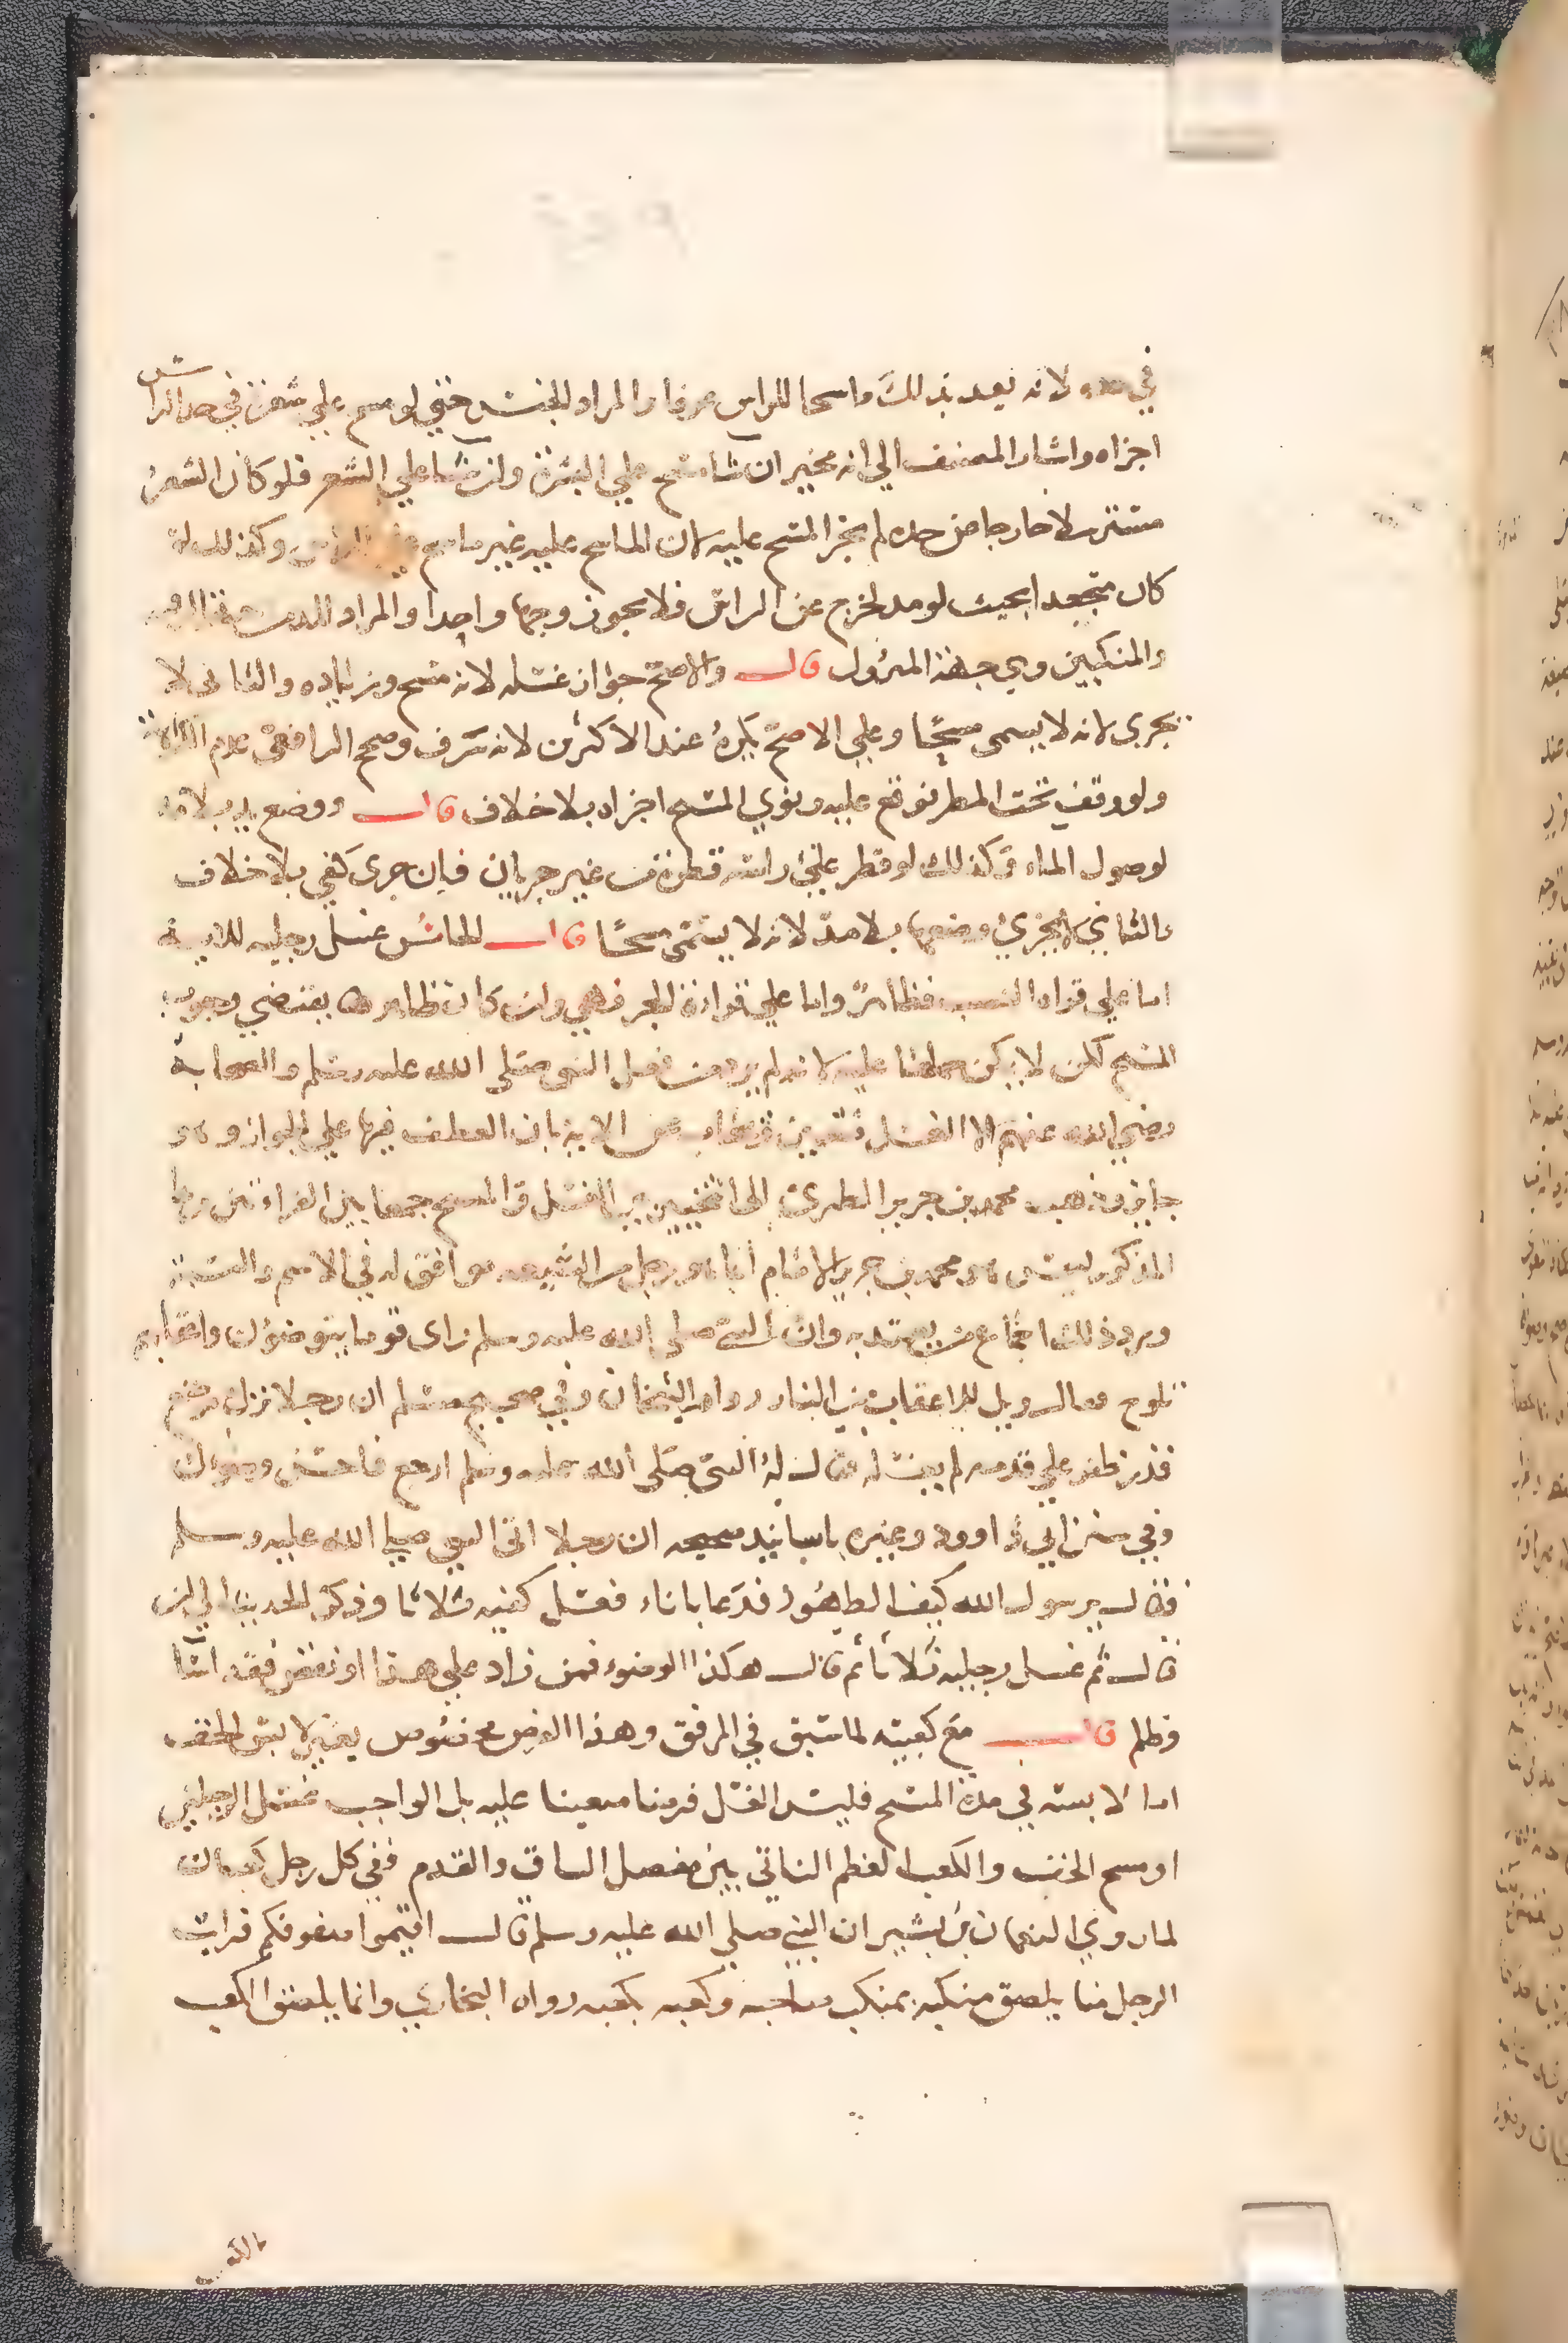 في حده لانه يعد بذلك ماسحا للراس عرفا والمراد الجنس حتي لو مسح علي شعرة في حد الراس
اجزاه واشار المصنف الي انه مخير ان شا مسح علي البشرة وان شا علي الشعر فلو كان الشعر
مسترسلا خارجا عن حده لم يجز المسح عليه لان الماسح عليه غير ماسح علي الراس وكذلك لو
كان متجعدا بحيث لو مد لخرج عن الراس فلا يجوز وجها واحدا والمراد المد من جهة الرقبة
والمنكبين وهي جهة النزول قال والاصح جواز غسله لانه مسح وزياده والثاني لا
يجزى لانه لا يسمى مسحًا وعلي الاصح يكرهُ عند الاكثرين لانه سرف وصحح الرافعي عدم الكراهة
ولو وقف تحت المطر فوقع عليه ونوي المسح اجزاه بلا خلاف قال ووضع يد بلا مد
لوصول الماء وكذلك لو قطر علي راسه قطرة من غير جريان فان جرى كفي بلا خلاف
والثاني لا يجزئ وضعها بلا مدّ لانه لا يسمى مسحًا قال الخامس غسل رجليه للاية
اما علي قراه النصب فظاهرٌ واما علي قراءة الجر فهي وان كان ظاهرها يقتضي وجوب
المسح لكن لا يمكن حملها عليه لانه لم يرد من فعل النبي صلى الله عليه وسلم والصحابة
رضي الله عنهم الا الغسل فتعين وجواب عن الاية بان العطف فيها علي الجواز وهو
جايز وذهب محمد بن جرير الطبري الى التخيير بين الغسل والمسح جمعا بين القراءتين وهذا
المذكور ليس هو محمد بن جرير الامام انما هو رجل من الشيعه موافق له في الاسم والنسبة
ويرد ذلك اجماع من يعتد به وان النبي صلى الله عليه وسلم راى قوما يتوضؤن واعقابهم
تلوح فقال ويل للاعقاب من النار رواه الشيخان وفي صحيح مسلم ان رجلا ترك موضع
قدر ظفر علي قدمه لم يغسله فقال لهُ النبي صلى الله عليه وسلم ارجع فاحسن وضوءك
وفي سنن ابي داوود وغيره باسانيد صحيحه ان رجلا اتى النبي صلي الله عليه وسلم
فقال يرسول الله كيف الطهُور فدعا باناء فغسل كفيه ثلاثا وذكر الحديث الي ان
قال ثم غسل رجليه ثلاثا ثم قال هكذا الوضوء فمن زاد علي هذا او نقص فقد اسَا
وظلم قال مع كعبيه لما سبق في المرفق وهذا الفرض مخصوص بغير لابس الخف
اما لابسه في مدة المسح فليس الغسل فرضا متعينا عليه بل الواجب غسل الرجلين
او مسح الخف والكعب العظم الناتي بين مفصل الساق والقدم ففي كل رجل كعبان
لما روي النعمان بن بشير ان النبي صلي الله عليه وسلم قال اقيموا صفوفكم فرايت
الرجل منا يلصق منكبه بمنكب صاحبه وكعبه بكعبه رواه البخاري وانما يلصق الكعب